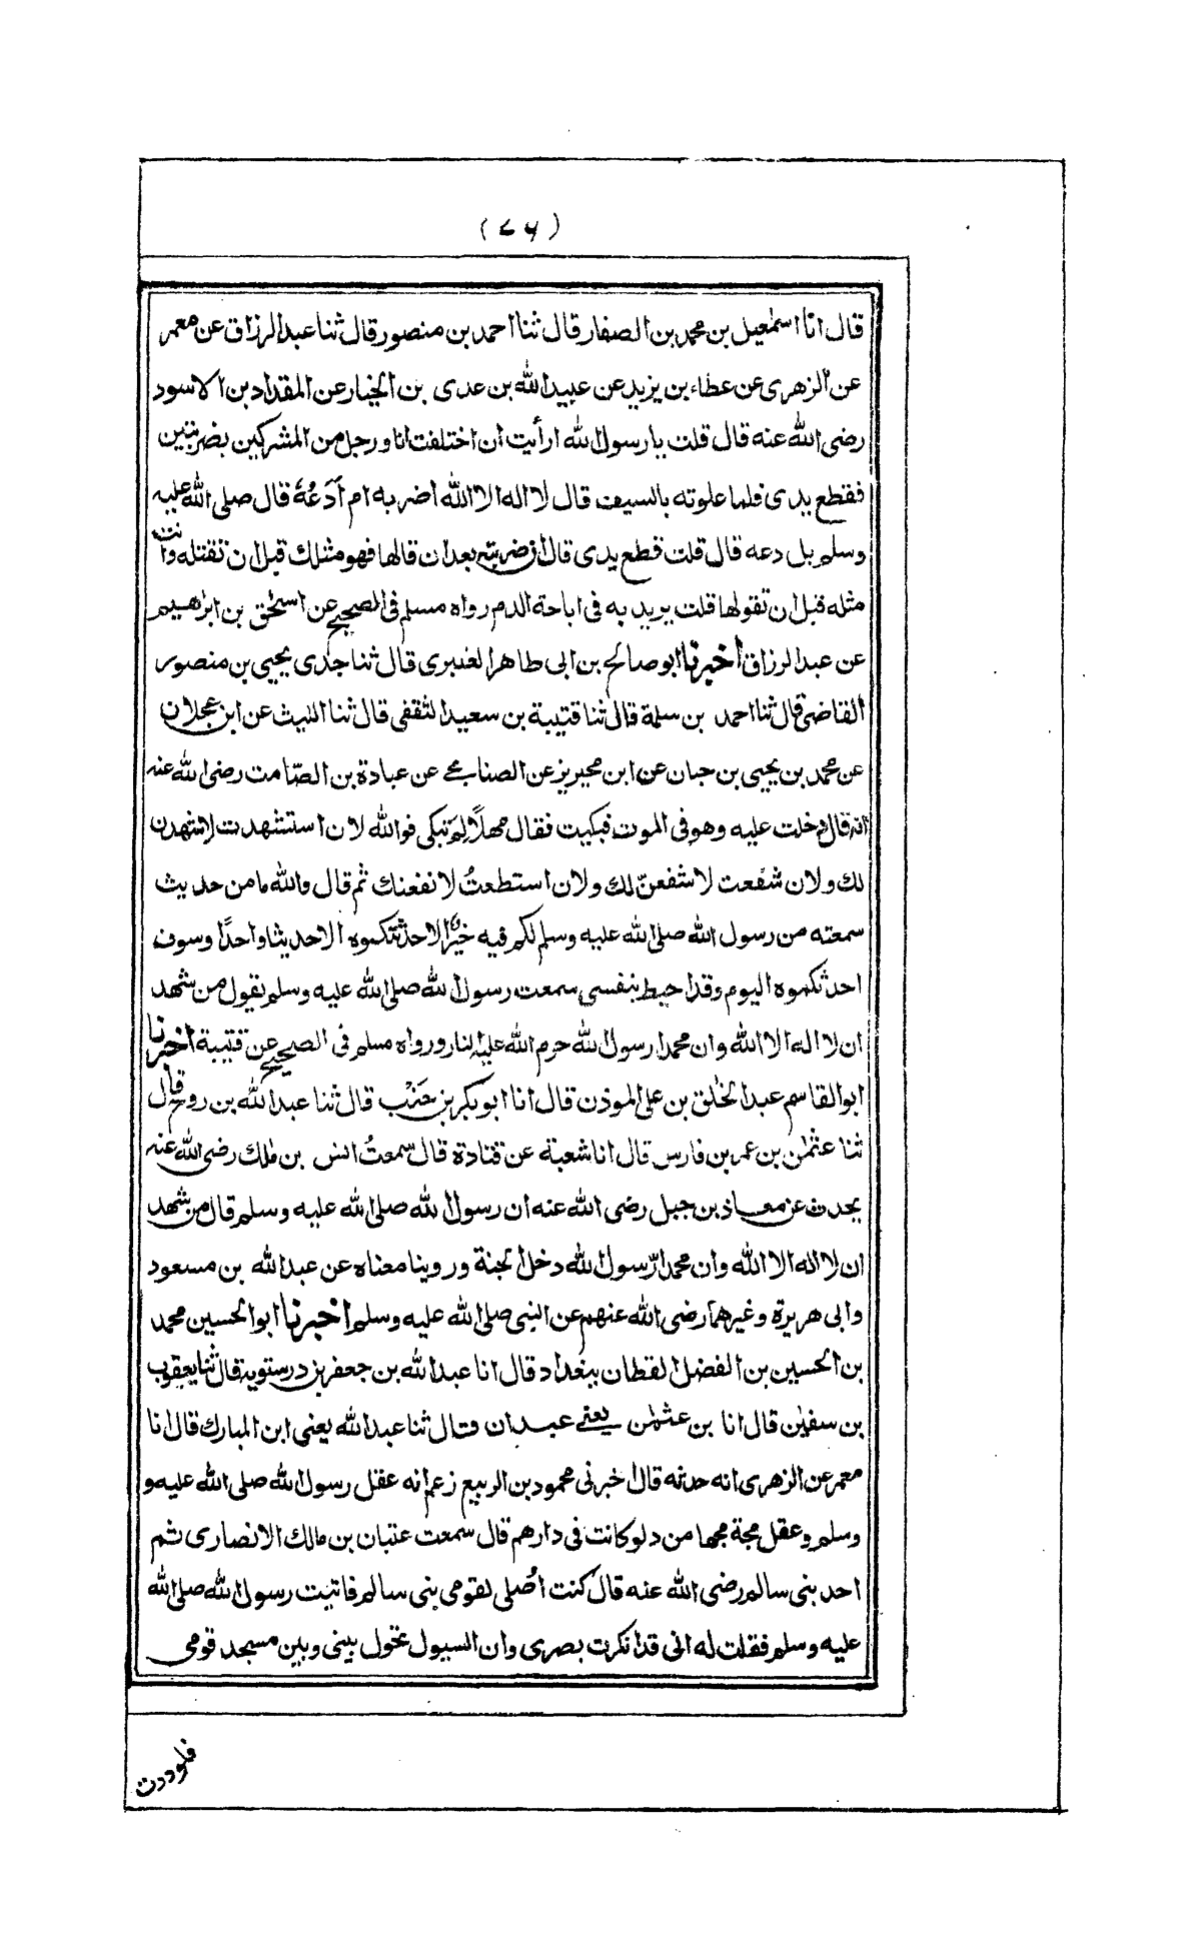 (٧٦)
قال انا اسمٰعيل بن محمد بن الصفار قال ثنا احمد بن منصور قال ثنا عبد الرزاق عن معمر
عن الزهرى عن عطاء بن يزيد عن عبيد الله بن عدى بن الخيار عن المقداد بن الاسود
رضى الله عنه قال قلت يا رسول الله ارأيت ان اختلفت انا ورجل من المشركين بضربتين
فقطع يدى فلما علوته بالسيف قال لا اله الا الله اضربه ام أَدَعُهُ قال صلى الله عليه
وسلم بل دعه قال قلت قطع يدى قال ان ضربته بعد ان قالها فهو مثلك قبل ان تقتله وانت
مثله قبل ان تقولها قلت يريد به فى اباحة الدم رواه مسلم فى الصحيح عن اسحٰق بن ابراهيم
عن عبد الرزاق اخبرنا ابو صالح بن ابى طاهر العنبرى قال ثنا جدى يحيى بن منصور
القاضى قال ثنا احمد بن سلمة قال ثنا قتيبة بن سعيد الثقفى قال ثنا الليث عن ابن عجلان
عن محمد بن يحيى بن حبان عن ابن محيريز عن الصنابحے عن عبادة بن الصّامت رضى الله عنه
انه قال دخلت عليه وهو فى الموت فبكيت فقال مهلًا لِمَ تبكى فوالله لان استشهدت لاشهدن
لك ولان شفعت لاشفعنّ لك ولان استطعتُ لانفعنك ثم قال والله ما من حديث
سمعته من رسول الله صلى الله عليه وسلم لكم فيه خيرًا الا حدثتكموه الا حديثا واحدًا وسوف
احدثكموه اليوم وقد احيط بنفسى سمعت رسول الله صلى الله عليه وسلم يقول من شهد
ان لا اله الا الله وان محمدا رسول الله حرم الله عليه النار ورواه مسلم فى الصحيح عن قتيبة اخبرنا
ابو القاسم عبد الخٰلق بن على الموذن قال انا ابو بكر بن خَنْب قال ثنا عبد الله بن روح قال
ثنا عثمٰن بن عمر بن فارس قال انا شعبة عن قتادة قال سمعتُ انس بن مٰلك رضى الله عنه
يحدث عن معاذ بن جبل رضى الله عنه ان رسول الله صلى الله عليه وسلم قال من شهد
ان لا اله الا الله وان محمدا رّسول الله دخل الجنة وروينا معناه عن عبد الله بن مسعود
وابى هريرة وغيرهما رضى الله عنهم عن النبى صلى الله عليه وسلم اخبرنا ابو الحسين محمد
بن الحسين بن الفضل القطان ببغداد قال انا عبد الله بن جعفر بن درستويه قال ثنا يعقوب
بن سفيٰن قال انا بن عثمٰن يعنے عبدان قال ثنا عبد الله يعنى ابن المبارك قال انا
معمر عن الزهرى انه حدثه قال اخبرنى محمود بن الربيع زعم انه عقل رسول الله صلى الله عليه و
وسلم وعقل مجة مجها من دلو كانت فى دارهم قال سمعت عتبان بن مالك الانصارى ثم
احد بنى سالم رضى الله عنه قال كنت اُصلى لقومى بنى سالم فاتيت رسول الله صلى الله
عليه وسلم فقلت له انى قد انكرت بصرى وان السيول تحول بينى وبين مسجد قومى
فلوددت